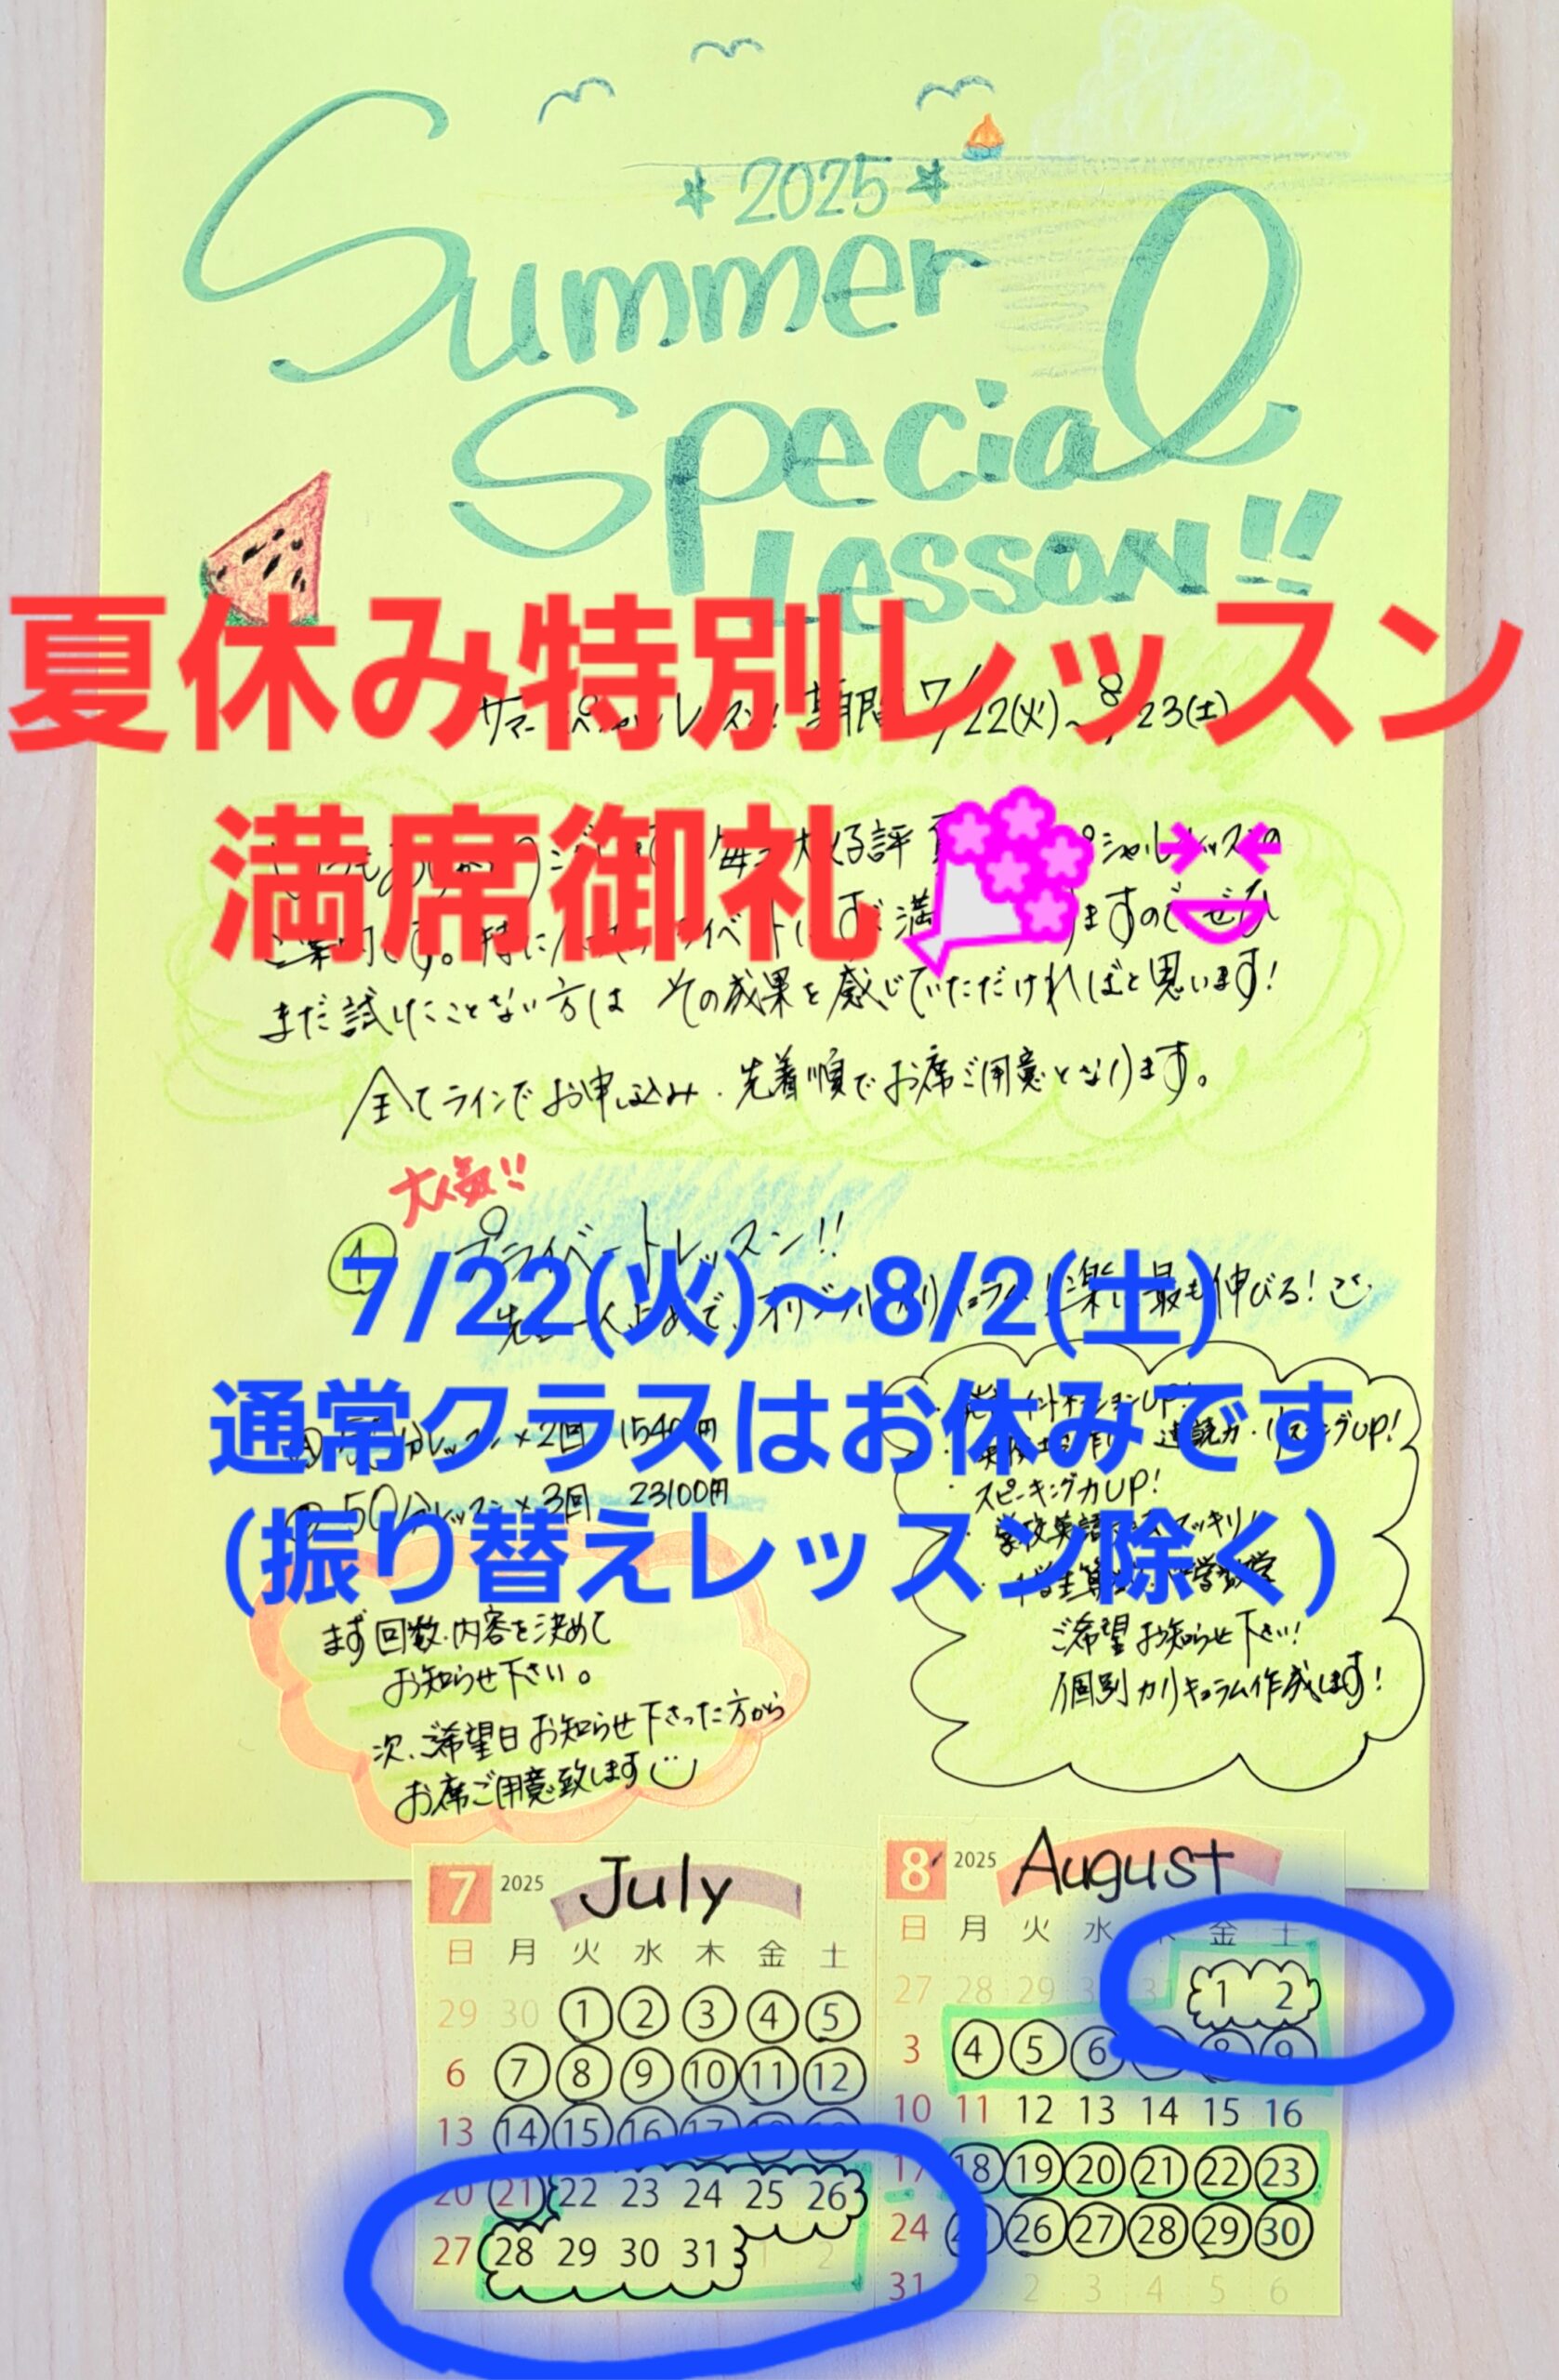 2025
Summer
Special
Lesson!!
夏休み特別レッスン
サマースペシャルレッスン! 期間 7/22(火)~8/23(土)
満席御礼
まだ試したことない方は その成果を感じていただければと思います!
全てラインでお申し込み、先着順でお席ご用意となります。
大人気!!
① プライベートレッスン!!
最も伸びる!
7/22(火)～8/2(土)
通常クラスはお休みです
(振り替えレッスン除く)
レッスン×2回 15400円
50分レッスン×3回 23100円
イントネーションUP!
速読力・リスニングUP!
スピーキング力UP!
ご希望お知らせ下さい!
個別カリキュラム作成します!
まず回数、内容を決めて
お知らせ下さい。
次、ご希望日お知らせ下さった方から
お席ご用意致します
7 2025 July
日 月 火 水 木 金 土
29 30 1 2 3 4 5
6 7 8 9 10 11 12
13 14 15 16 17 18 19
20 21 22 23 24 25 26
27 28 29 30 31 1 2
8 2025 August
日 月 火 水 木 金 土
27 28 29 30 31 1 2
3 4 5 6 8 9
10 11 12 13 14 15 16
17 18 19 20 21 22 23
24 25 26 27 28 29 30
31 2 3 4 5 6